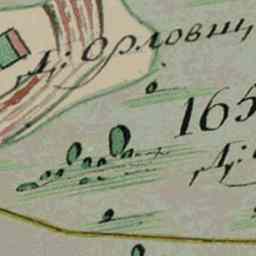 Д: Орловщ
165
Д: